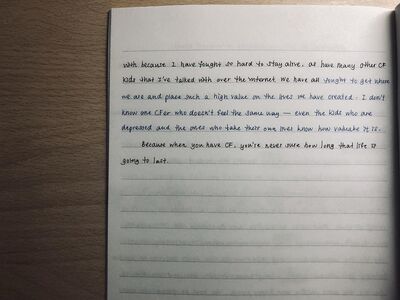 with because I have fought so hard to stay alive, as have many other CF
kids that I've talked with over the internet. We have all fought to get where
we are and place such a high value on the lives we have created. I don't
know one CFer who doesn't feel the same way — even the kids who are
depressed and the ones who take their own lives know how valuable it is.
Because when you have CF, you're never sure how long that life is
going to last.